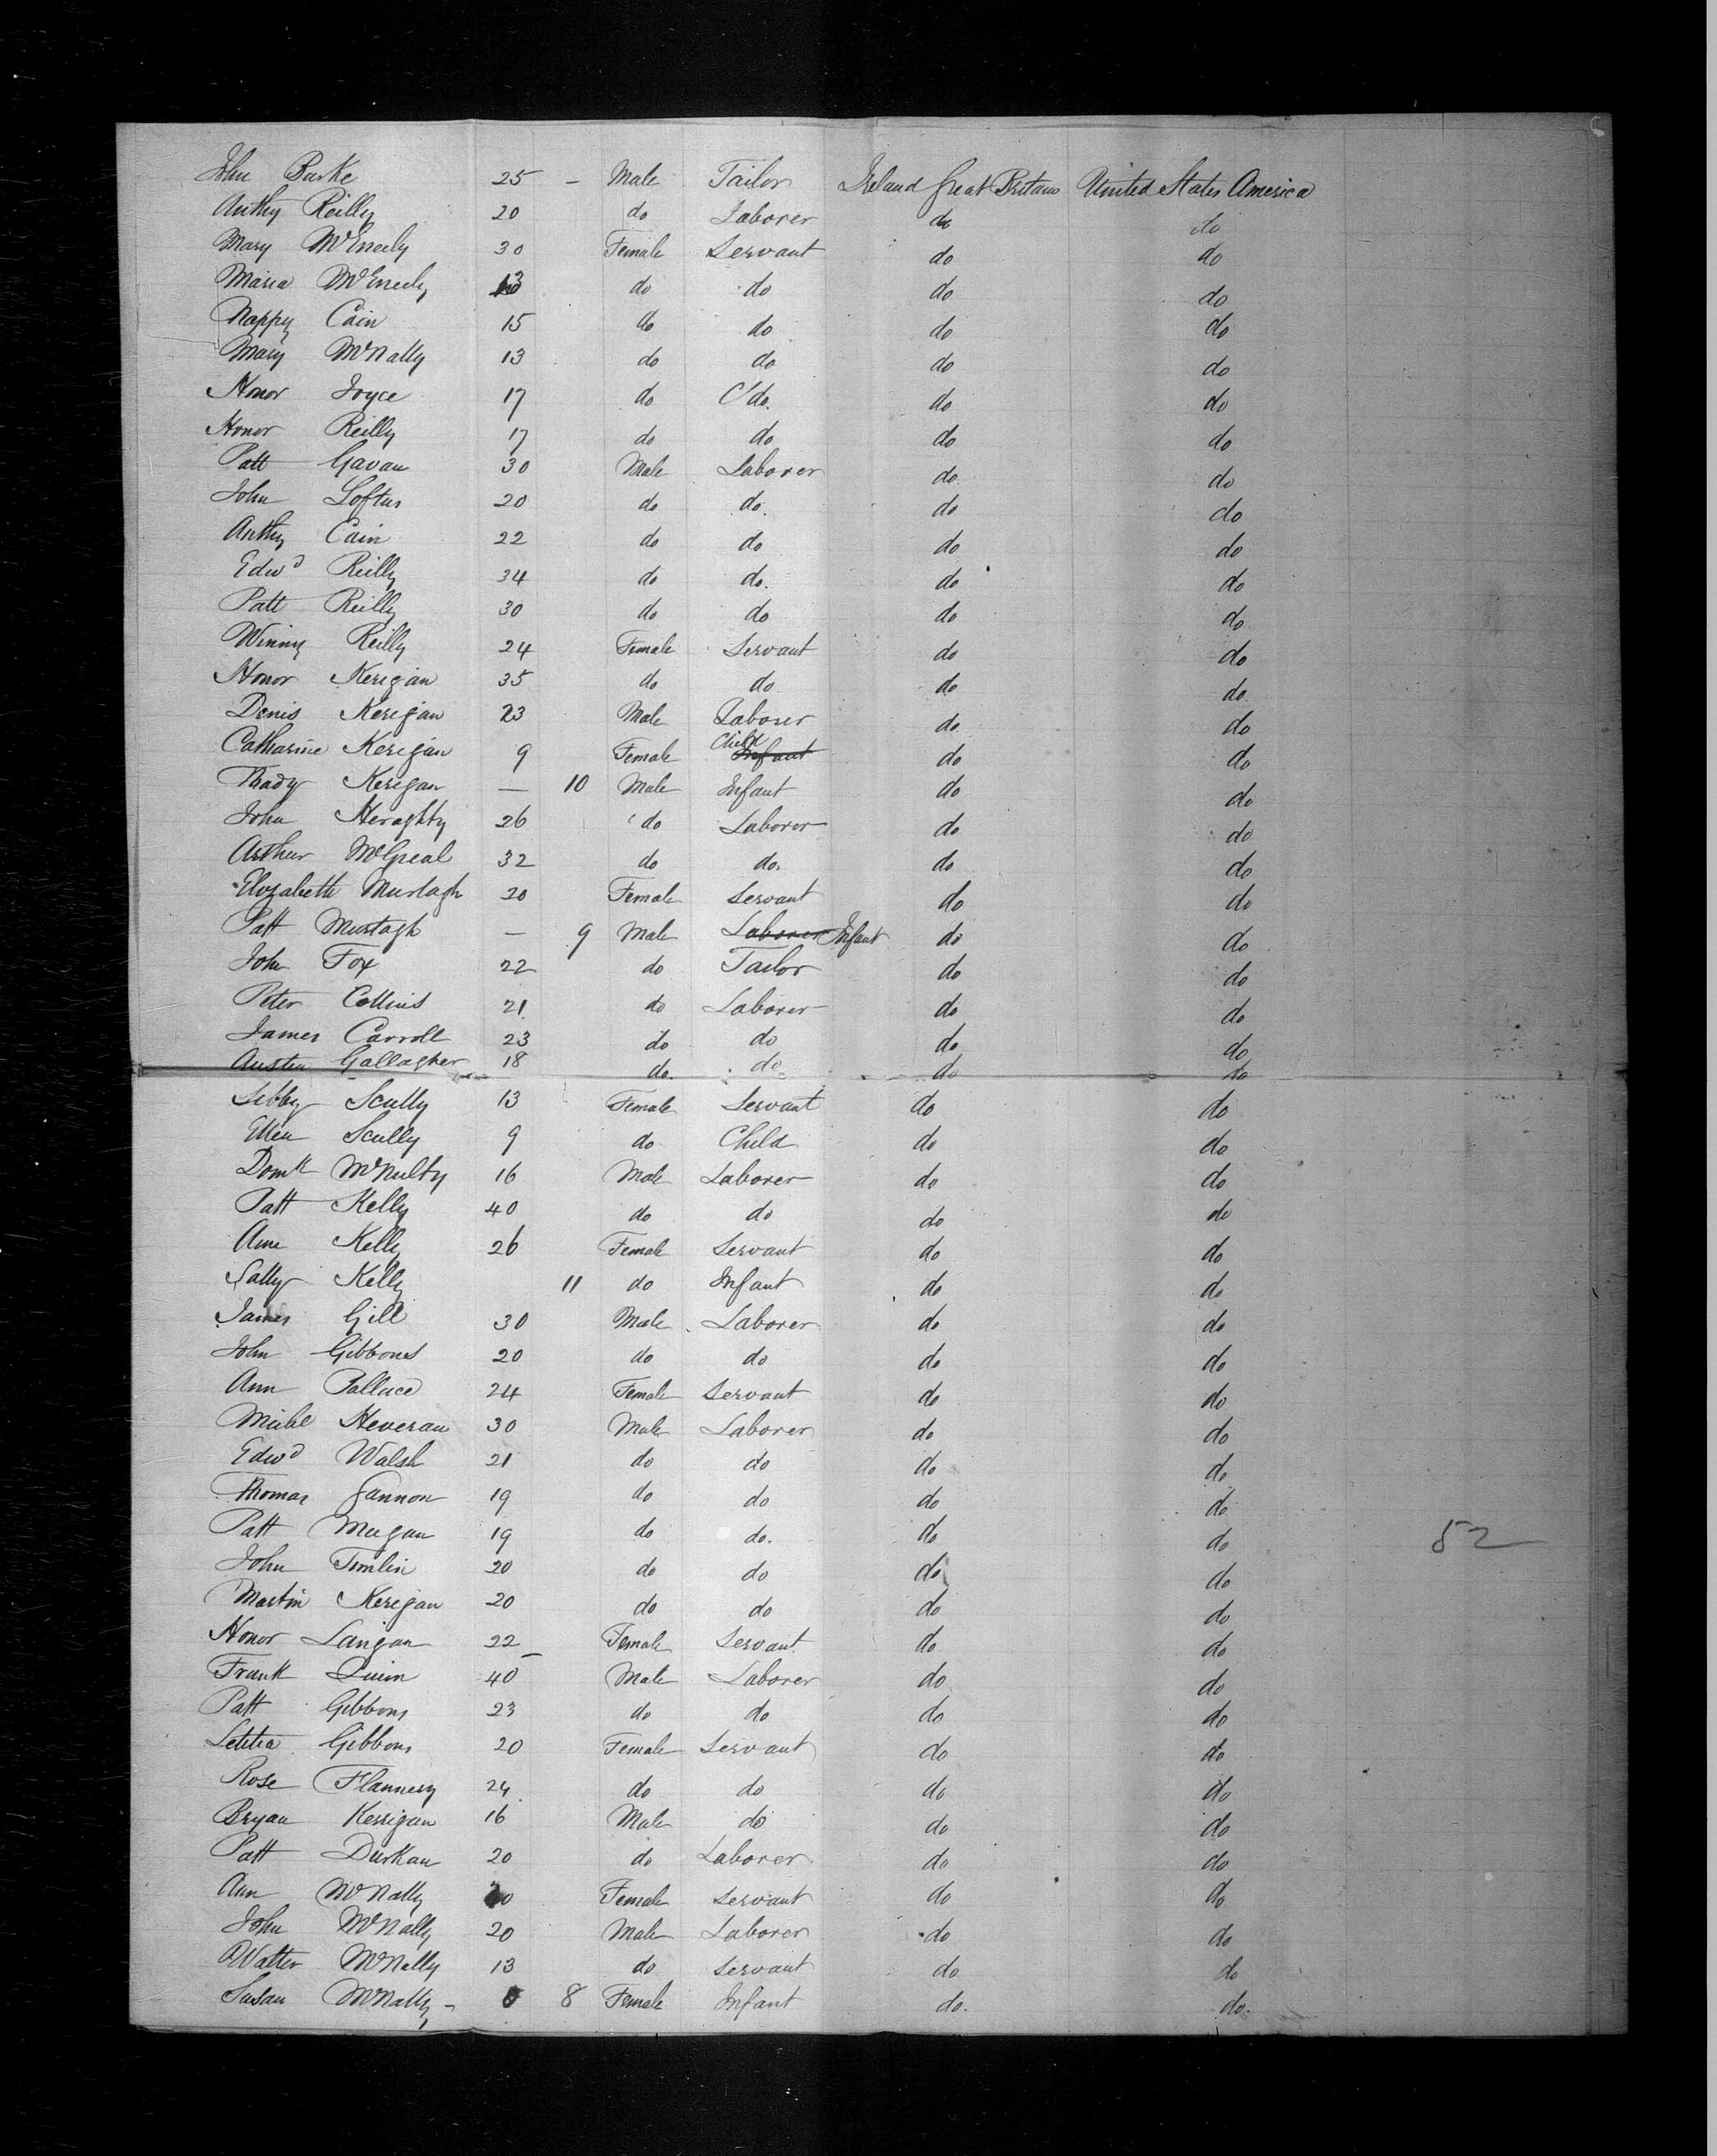 John Burke 25 — Male Tailor Ireland Great Britain United States America
Anthy Reilly 20 do Laborer do do
Mary McEneely 30 Female Servant do do
Maria McEneely 13 do do do do
Nappy Cain 15 do do do do
Mary McNally 13 do do do do
Honor Joyce 17 do do. do do
Honor Reilly 17 do do do do
Patt Gavan 30 Male Laborer do do
John Loftus 20 do do. do do
Anthy Cain 22 do do do do
Edwd Reilly 34 do do. do do
Patt Reilly 30 do do do do
Winny Reilly 24 Female Servant do do
Honor Kerigan 35 do do do do
Denis Kerigan 23 Male Laborer do do
Catharine Kerigan 9 Female Child Infant do do
Thady Kerigan — 10 Male Infant do do
John Heraghty 26 do Laborer do do
Arthur McGreal 32 do do. do do
Elizabeth Murtagh 20 Female Servant do do
Patt Murtagh — 9 Male Laborer Infant do do
John Fox 22 do Tailor do do
Peter Collins 21 do Laborer do do
James Carroll 23 do do do do
Austin Gallagher 18 do. do do do
Sibby Scully 13 Female Servant do do
Ellen Scully 9 do Child do do
Domk McNulty 16 Male Laborer do do
Patt Kelly 40 do do do do
Ann Kelly 26 Female Servant do do
Sally Kelly 11 do Infant do do
James Gill 30 Male Laborer do do
John Gibbons 20 do do do do
Ann 24 Female Servant do do
Michl Heveran 30 Male Laborer do do
Edwd Walsh 21 do do do do
Thomas Gannon 19 do do do do
Patt Mugan 19 do do. do do
John Timlin 20 do do do do
Martin Kerigan 20 do do do do
Honor Langan 22 Female Servant do do
Frank Quin 40 Male Laborer do do
Patt Gibbons 23 do do do do
Letitia Gibbons 20 Female Servant do do
Rose Flannery 24 do do do do
Bryan Kerrigan 16 Male do do do
Patt Durkan 20 do Laborer do do
Ann McNally Female Servant do do
John McNally 20 Male Laborer do do
Walter McNally 13 do Servant do do
Susan McNally - 8 Female Infant do. do.
52